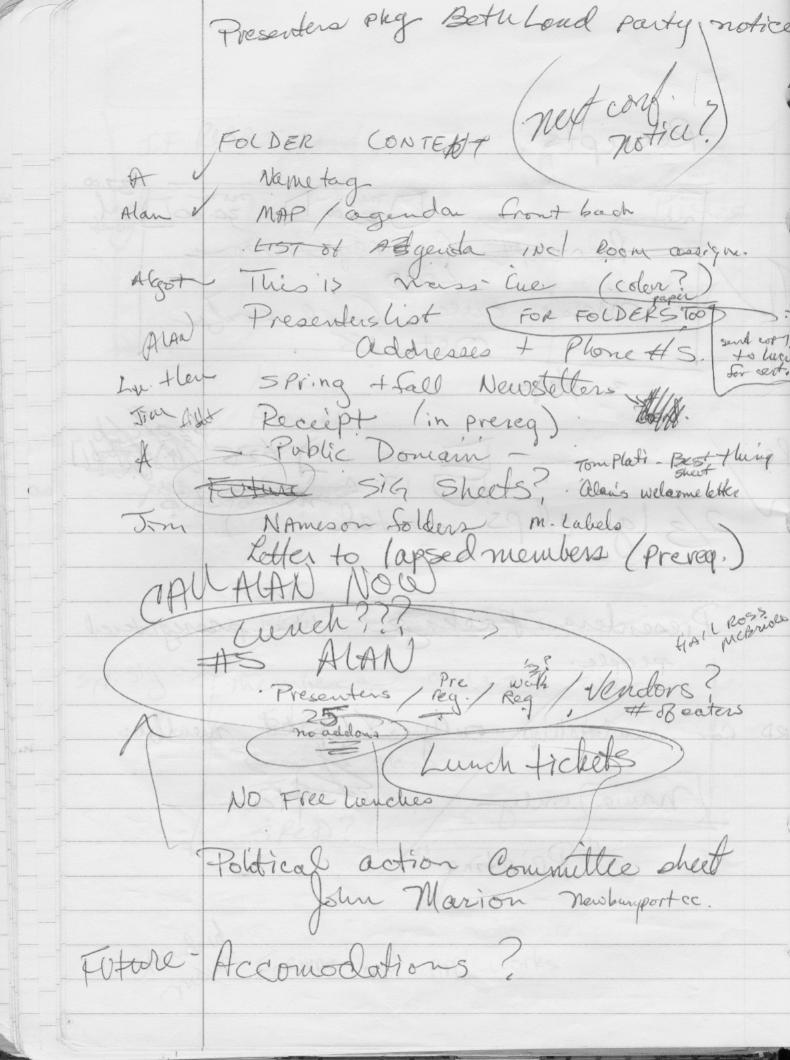 Presenters pkg Beth Loud party notice
next conf. notice?
FOLDER CONTENT
A ✓ Nametag
Alan ✓ MAP / agenda front back
LIST of Agenda incl Room assign.
This is (color?)
paper
Presenters list FOR FOLDERS TOO
ALAN Addresses + Phone #s.
send copy
to
for cert.
Spring + fall Newsletters
Jim Receipt (in prereq)
A — Public Domain —
Tom Plati - Best thing
sheet
Future SIG Sheets? · Alan's welcome letter
Jim Names on folders M. Labels
Letter to lapsed members (prereq.)
CALL ALAN NOW
Lunch???
#S ALAN
HAIL ROSS
McBride
· Presenters / Pre reg. / walk Reg / Vendors?
25
# of eaters
no addons
Lunch tickets
NO Free Lunches
Political action Committee sheet
John Marion Newburyport cc.
Future - Accomodations ?